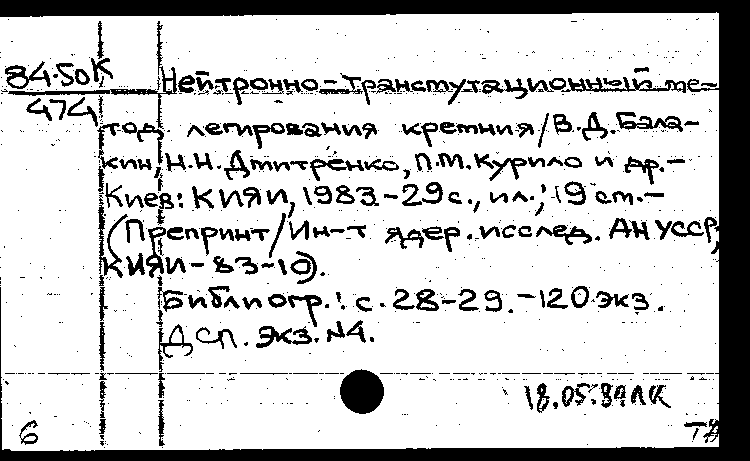 84-50К
474
Нейтронно-трансмутационный ме-
тод легирования кремния/В.Д.Бала-
кин, Н.Н.Дмитренко, П.М.Курило и др.-
Киев: КИЯИ, 1983.-29с., ил.; 19 см.-
(Препринт/Ин-т ядер.исслед. АН УССР,
КИЯИ-83-10).
Библиогр.: с.28-29.-120 экз.
ДСП. Экз.№4.
18.05.84
6